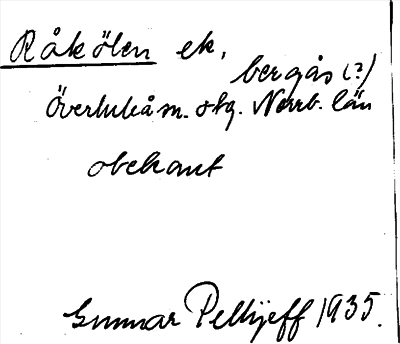 Råkölen ek,
bergås (?)
Överluleå m. skg. Norrb. län
obekant
Gunnar Pellijeff 1935.